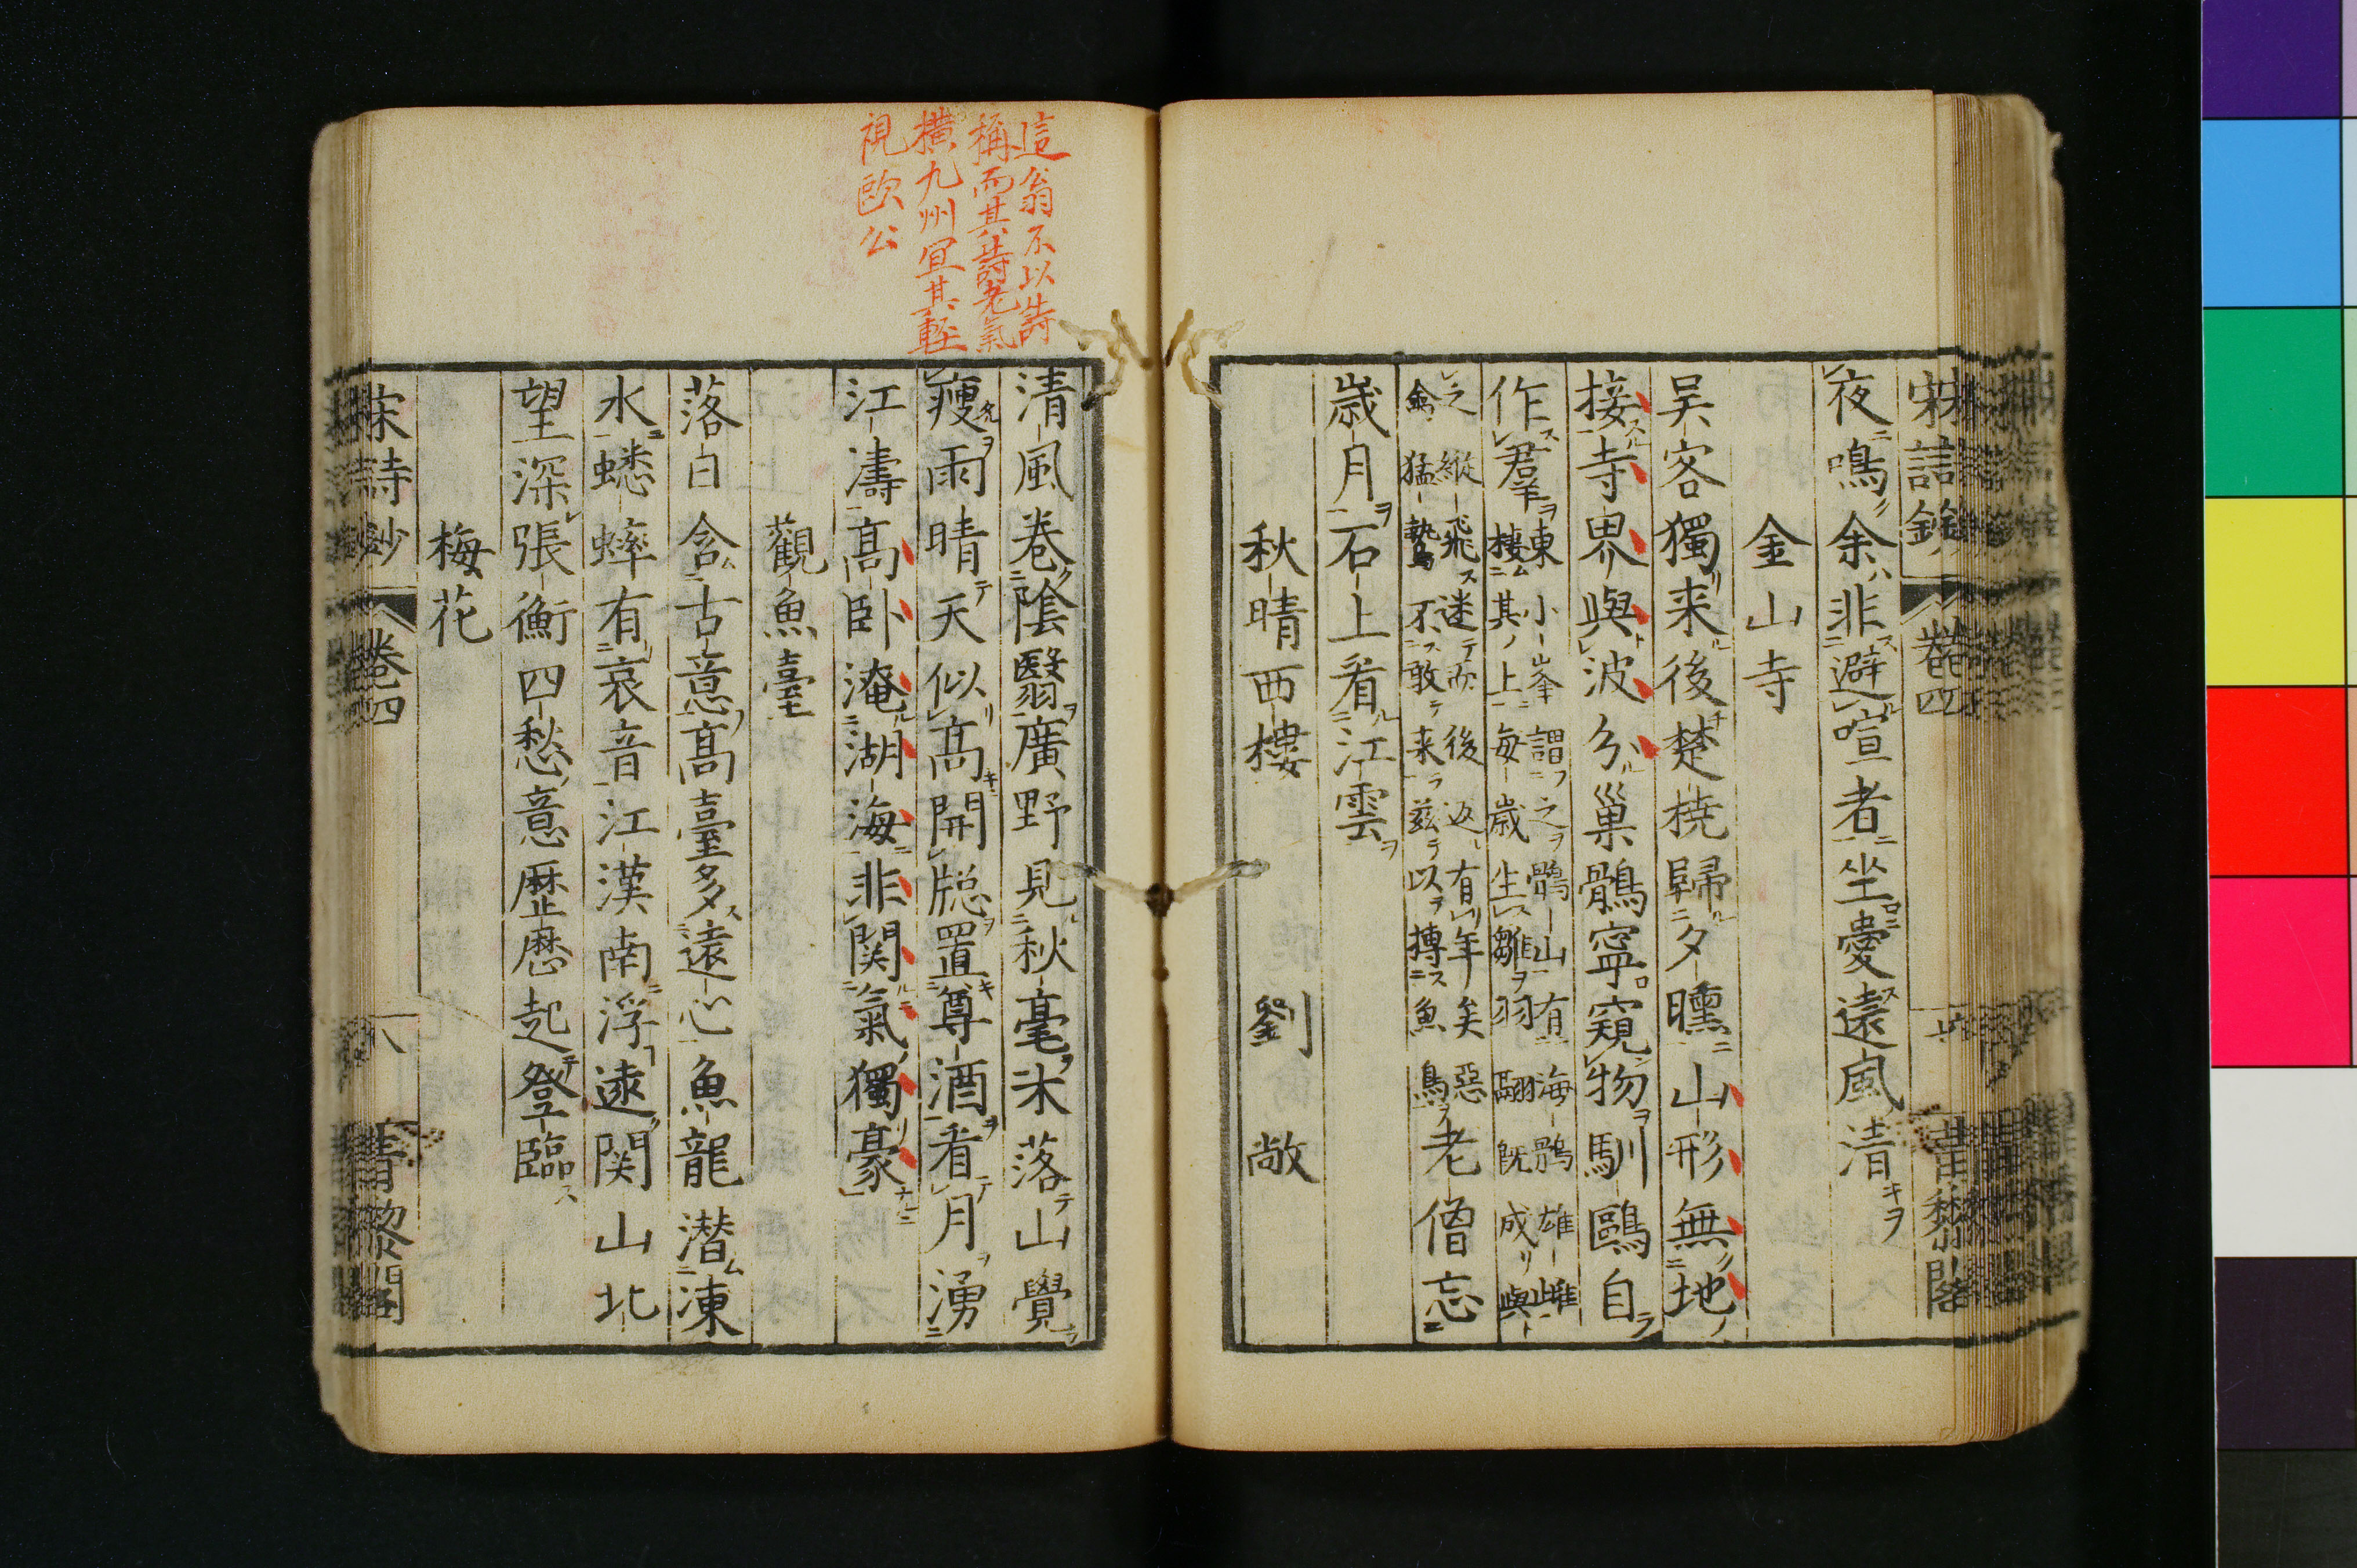 夜鳴余非避喧者坐愛遠風清
金山寺
吴客獨来後楚橈歸夕曛山形無地
接寺界與波分巢鶻寧窺物馴鷗自
作羣東小峯謂之鶻山有海鶻雄雌
棲其上每歲生雛羽翮既成與
之縱飛迷而後返有年矣惡
禽猛鷙不敢来兹以搏魚鳥老僧忘
歲月石上看江雲
秋晴西樓 劉敞
這翁不以詩
稱而其詩老氣
橫九州宜其輕
視歐公
清風卷陰翳廣野見秋毫木落山覺
瘦雨晴天似高開牕置尊酒看月湧
江濤高卧淹湖海非関氣獨豪
觀魚臺
落日含古意高臺多遠心魚龍潜凍
水蟋蟀有哀音江漢南浮遠関山北
望深張衡四愁意歷歷起登臨
梅花
宋詩鈔 卷四 八 青黎閣